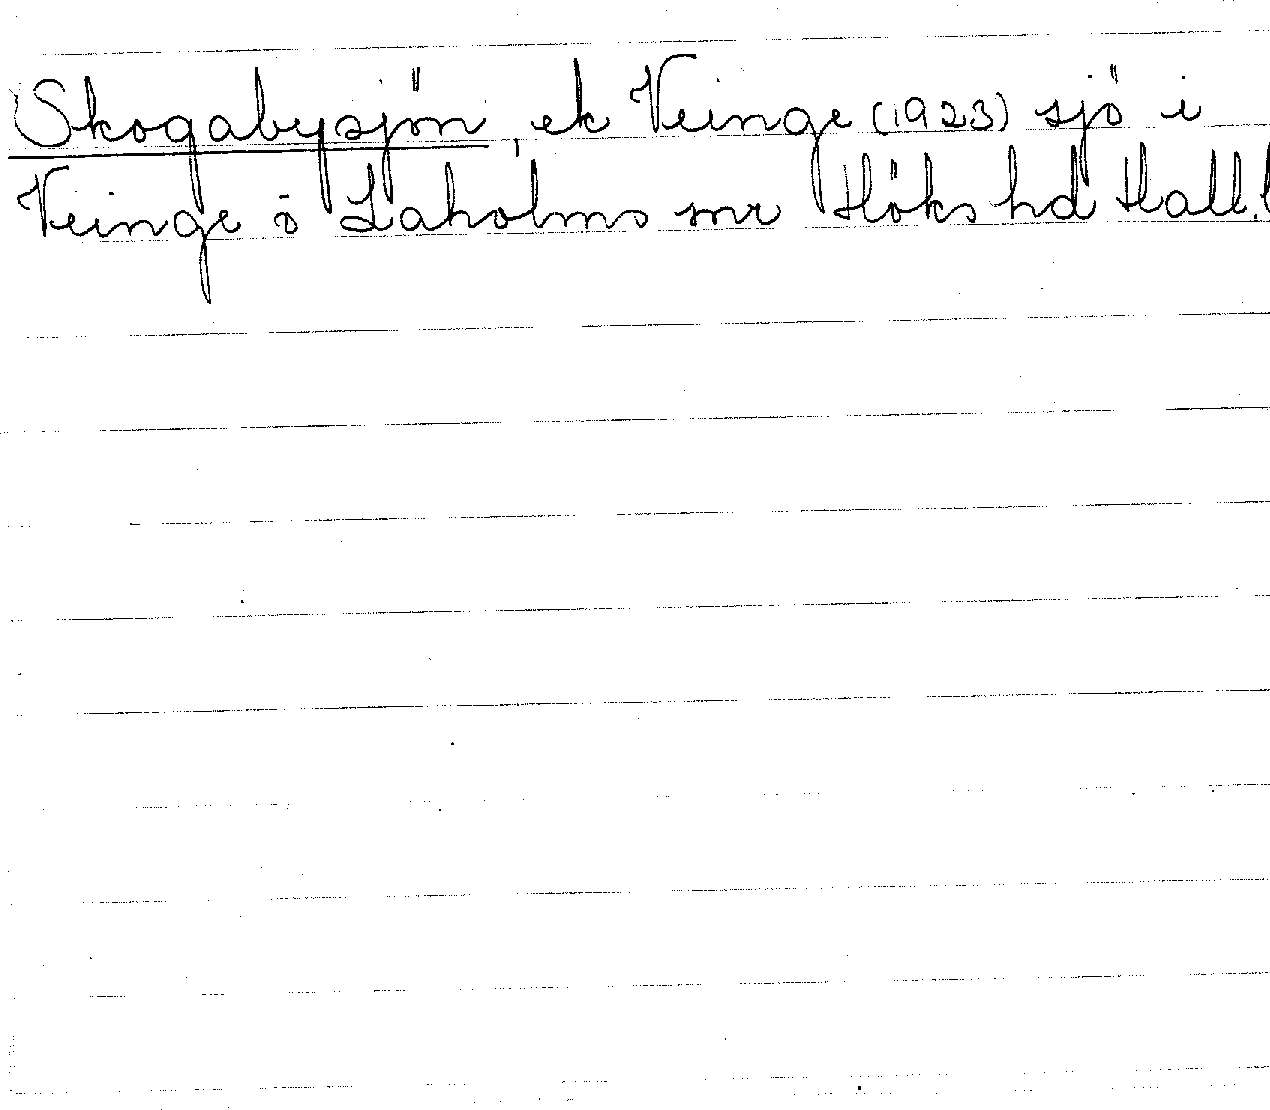 Skogabysjön, ek Veinge (1923) sjö i
Veinge ö Laholms snr Höks hd Hall.l